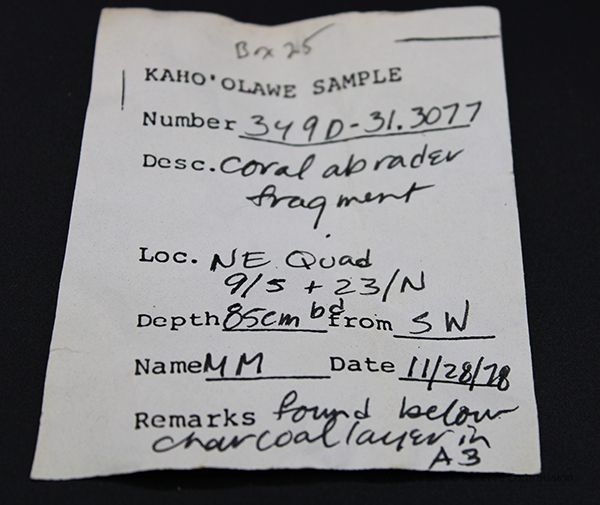 Box 25
KAHO'OLAWE SAMPLE
Number 349D-31.3077
Desc. coral abrader
fragment
Loc. NE Quad
9/5 + 23/N
Depth 85cm bd from SW
Name MM Date 11/28/78
Remarks found below
charcoal layer in
A3